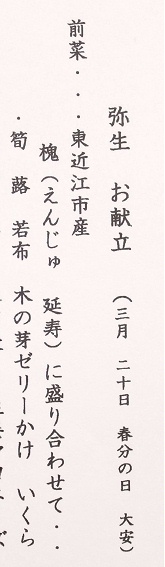 弥生 お献立 (三月 二十日 春分の日 大安)
前菜・・・東近江市産
槐(えんじゅ 延寿)に盛り合わせて・・
・筍 蕗 若布 木の芽ゼリーかけ いくら